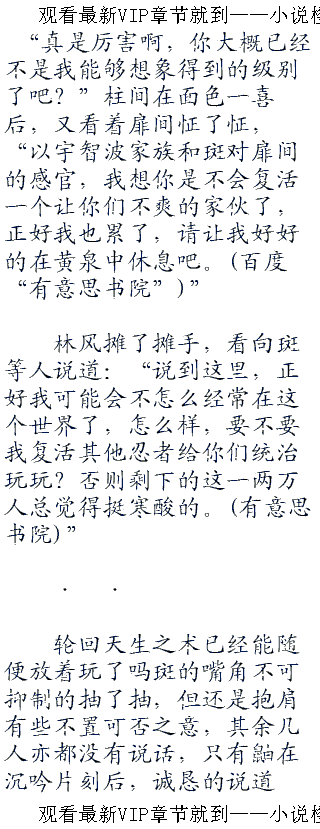 观看最新VIP章节就到——小说检
“真是厉害啊，你大概已经
不是我能够想象得到的级别
了吧？”柱间在面色一喜
后，又看着扉间怔了怔，
“以宇智波家族和斑对扉间
的感官，我想你是不会复活
一个让你们不爽的家伙了，
正好我也累了，请让我好好
的在黄泉中休息吧。(百度
“有意思书院”)”
林风摊了摊手，看向斑
等人说道：“说到这里，正
好我可能会不怎么经常在这
个世界了，怎么样，要不要
我复活其他忍者给你们统治
玩玩？否则剩下的这一两万
人总觉得挺寒酸的。(有意思
书院)”
. .
轮回天生之术已经能随
便放着玩了吗斑的嘴角不可
抑制的抽了抽，但还是抱肩
有些不置可否之意，其余几
人亦都没有说话，只有鼬在
沉吟片刻后，诚恳的说道
观看最新VIP章节就到——小说检